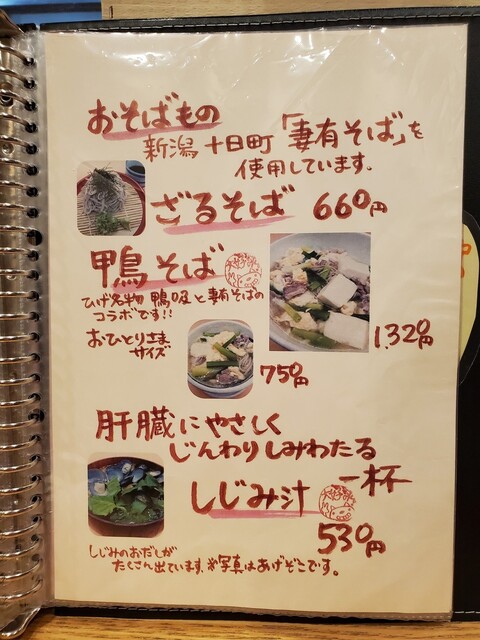 おそばもの
新潟 十日町 「妻有そば」を
使用しています。
ざるそば 660円
鴨そば
ひげ名物 鴨吸と妻有そばの
コラボです!!
1,320円
おひとりさま
サイズ
750円
肝臓にやさしく
じんわりしみわたる
しじみ汁 一杯
530円
しじみのおだしが
たくさん出ています。※写真はあげぞこです。